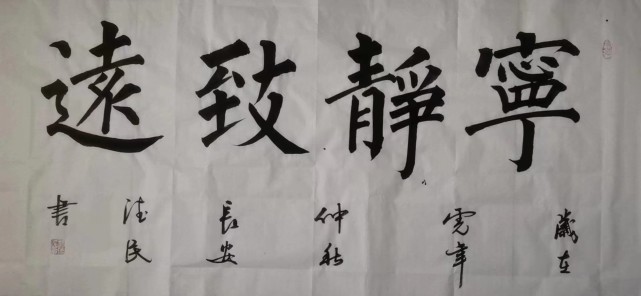 寧靜致遠
歲在
虎年
仲秋
長安
德民
書